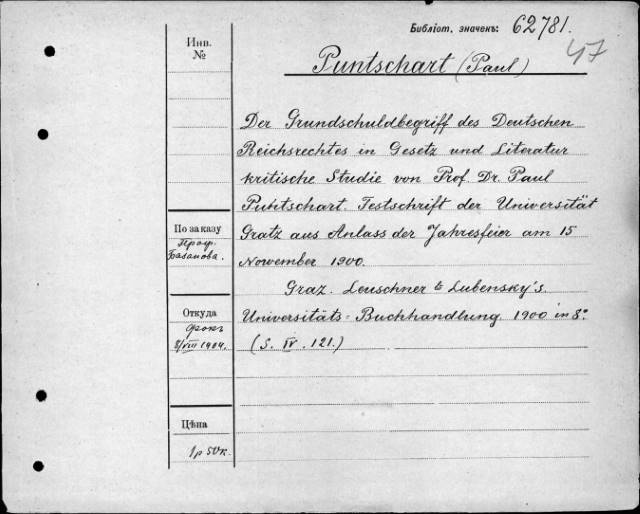 Библіот. значекъ: 62781.
47
Инв.
№
Puntschart (Paul)
Der Grundschuldbegriff des Deutschen
Reichsrechtes in Gesetz und Literatur
kritische Studie von Prof. Dr. Paul
Puntschart. Festschrift der Universität
Gratz aus Anlass der Jahresfeier am 15
November 1900.
Graz. Leuschner & Lubensky's.
Universitäts-Buchhandlung 1900 in 8°
(S. IV. 121.)
По заказу
Проф.
Базанова.
Откуда
Фокъ
8/VIII 1904.
Цѣна
1 р 50 к.